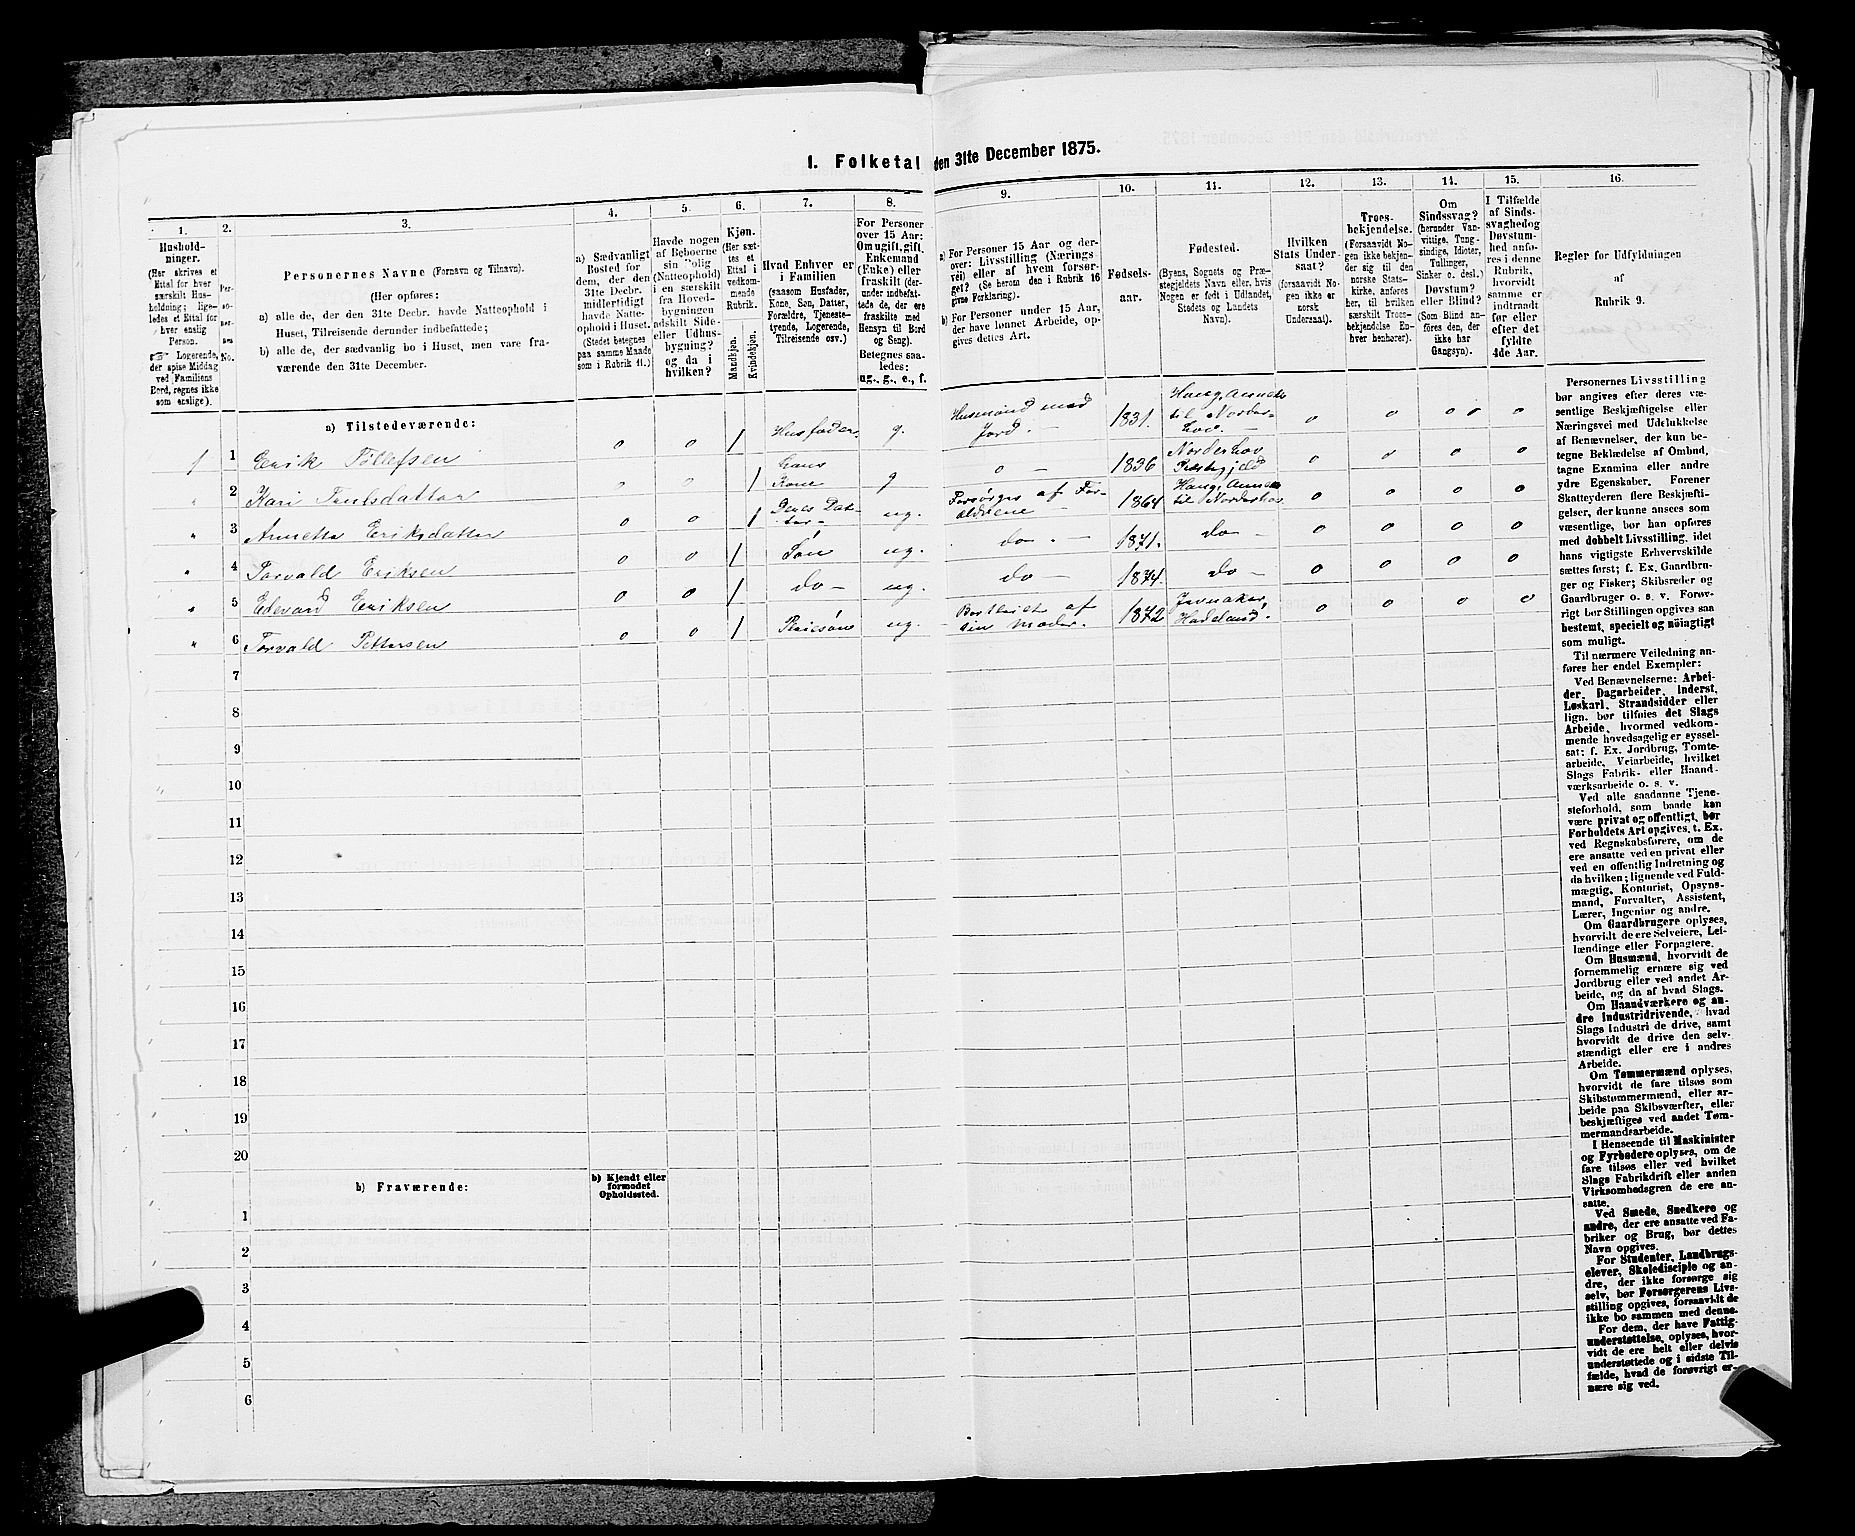 1. Folketal den 31te December 1875.
1.
2.
3.
4.
5.
6.
7.
8.
9.
10.
11.
12.
13.
14.
15.
16.
Hushold-
ninger.
(Her skrives et
Ettal for hver
særskilt Hus-
holdning; lige-
ledes et Ettal for
hver enslig
Person.
☞ Logerende,
der spise Middag
ved Familiens
Bord, regnes ikke
som enslige).
Per-
so-
ner-
nes
No.
Personernes Navne (Fornavn og Tilnavn).
(Her opføres:
a) alle de, der den 31te Decbr. havde Natteophold i
Huset, Tilreisende derunder indbefattede;
b) alle de, der sædvanlig bo i Huset, men vare fra-
værende den 31te December.
a) Sædvanligt
Bosted for
dem, der den
31te Decbr.
midlertidigt
havde Natte-
ophold i Huset.
(Stedet betegnes
paa samme Maade
som i Rubrik 11.)
Havde nogen
af Beboerne
sin Bolig
(Natteophold)
i en særskilt
fra Hoved-
bygningen
adskilt Side-
eller Udhus-
bygning?
og da i
hvilken?
Kjøn.
(Her sæt-
tes et
Ettal i
vedkom-
mende
Rubrik.
Mandkjøn.
Kvindekjøn.
Hvad Enhver er
i Familien
(saasom Husfader,
Kone, Søn, Datter,
Forældre, Tjeneste-
tyende, Logerende,
Tilreisende osv.)
For Personer
over 15 Aar:
Om ugift, gift,
Enkemand
(Enke) eller
fraskilt (der-
under indbefat-
tede de, der ere
fraskilte med
Hensyn til Bord
og Seng).
Betegnes saa-
ledes:
ug., g., e., f.
a) For Personer 15 Aar og der-
over: Livsstilling (Nærings-
vei) eller af hvem forsør-
get? (Se herom den i Rubrik 16
givne Forklaring).
b) For Personer under 15 Aar,
der have lønnet Arbeide, op-
gives dettes Art.
Fødsels-
aar.
Fødested.
(Byens, Sognets og Præ-
stegjeldets Navn eller, hvis
Nogen er født i Udlandet,
Stedets og Landets
Navn).
Hvilken
Stats Under-
saat?
(forsaavidt No-
gen ikke er
norsk
Undersaat).
Troes-
bekjendelse.
(Forsaavidt No-
gen ikke bekjen-
der sig til den
norske Stats-
kirke, anføres
her, til hvilken
særskilt Troes-
bekjendelse En-
hver henhører).
Om
Sindssvag?
(herunder Van-
vittige, Tung-
sindige, Idioter,
Tullinger,
Sinker o. desl.)
Døvstum?
eller Blind?
(Som Blind an-
føres den, der
ikke har
Gangsyn).
I Tilfælde
af Sinds-
svaghed og
Døvstum-
hed anfø-
res i denne
Rubrik,
hvorvidt
samme er
indtraadt
før eller
efter det
fyldte
4de Aar.
Regler for Udfyldningen
af
Rubrik 9.
a) Tilstedeværende:
1 Erik Tollefsen 0 0 1 Husfader. g. Husmand med Jord. – 1831. Haug, Annex til Norderhov. – 0 0 0 0
" 2 Kari Truls­datter 0 0 1 hans Kone g 0 – 1836 Norderhov Præstegjeld 0 0 0 0
" 3 Annette Eriksdatter 0 0 1 Deres Datter – ug. Forsørges af Forældrene – 1864 Haug, Annex til Norderhov 0 0 0 0
" 4 Torvald Eriksen 0 0 1 Søn ug. do. – 1871. do – 0 0 0 0
" 5 Edevard Eriksen 0 0 1 do – ug. do – 1874. do – 0 0 0 0
" 6 Torvald Pettersen 0 0 1 Pleiesøn ug. Bortleiet af sin Moder. 1872 Jevnaker, Hadeland. 0 0 0 0
7
8
9
10
11
12
13
14
15
16
17
18
19
20
b) Fraværende:
b) Kjendt eller
formodet
Opholdssted.
1
2
3
4
5
6
Personernes Livsstilling
bør angives efter deres væ-
sentlige Beskjæftigelse eller
Næringsvei med Udelukkelse
af Benævnelser, der kun be-
tegne Beklædelse af Ombud,
tagne Examina eller andre
ydre Egenskaber. Forener
Skatteyderen flere Beskjæfti-
gelser, der kunne ansees som
væsentlige, bør han opføres
med dobbelt Livsstilling, idet
hans vigtigste Erhvervskilde
sættes først; f. Ex. Gaardbru-
ger og Fisker; Skibsreder og
Gaardbruger o. s. v. Forøv-
rigt bør Stillingen opgives saa
bestemt, specielt og nøiagtigt
som muligt.
Til nærmere Veiledning an-
føres her endel Exempler:
Ved Benævnelserne: Arbei-
der, Dagarbeider, Inderst,
Løskarl, Strandsidder eller
lign. bør tilføies det Slags
Arbeide, hvormed vedkom-
mende hovedsagelig er syssel-
sat; f. Ex. Jordbrug, Tomte-
arbeide, Veiarbeide, hvilket
Slags Fabrik- eller Haand-
værksarbeide o. s. v.
Ved alle saadanne Tjene-
steforhold, som baade kan
være privat og offentligt, bør
Forholdets Art opgives, t. Ex.
ved Regnskabsførere, om de
ere ansatte ved en privat eller
ved en offentlig Indretning og
da hvilken; lignende ved Fuld-
mægtig, Kontorist, Opsyns-
mand, Forvalter, Assistent,
Lærer, Ingeniør og andre.
Om Gaardbrugere oplyses,
hvorvidt de ere Selveiere, Lei-
lændinge eller Forpagtere.
Om Husmænd, hvorvidt de
fornemmelig ernære sig ved
Jordbrug eller ved andet Ar-
beide, og da af hvad Slags.
Om Haandværkere og an-
dre Industridrivende, hvad
Slags Industri de drive, samt
hvorvidt de drive den selv-
stændigt eller ere i andres
Arbeide.
Om Tømmermænd oplyses,
hvorvidt de fare tilsøs som
Skibstømmermænd, eller ar-
beide paa Skibsværfter, eller
beskjæftiges ved andet Tøm-
mermandsarbeide.
I Henseende til Maskinister
og Fyrbødere oplyses, om de
fare tilsøs eller ved hvilket
Slags Fabrikdrift eller anden
Virksomhedsgren de ere an-
satte.
Ved Smede, Snedkere og
andre, der ere ansatte ved Fa-
briker og Brug, bør dettes
Navn opgives.
For Studenter, Landbrugs-
elever, Skoledisciple og an-
dre, der ikke forsørge sig
selv, bør Forsørgerens Livs-
stilling opgives, forsaavidt de
ikke bo sammen med denne.
For dem, der have Fattig-
understøttelse, oplyses, hvor-
vidt de ere helt eller delvis
understøttede og i sidste Til-
fælde, hvad de forøvrigt er-
nære sig ved.